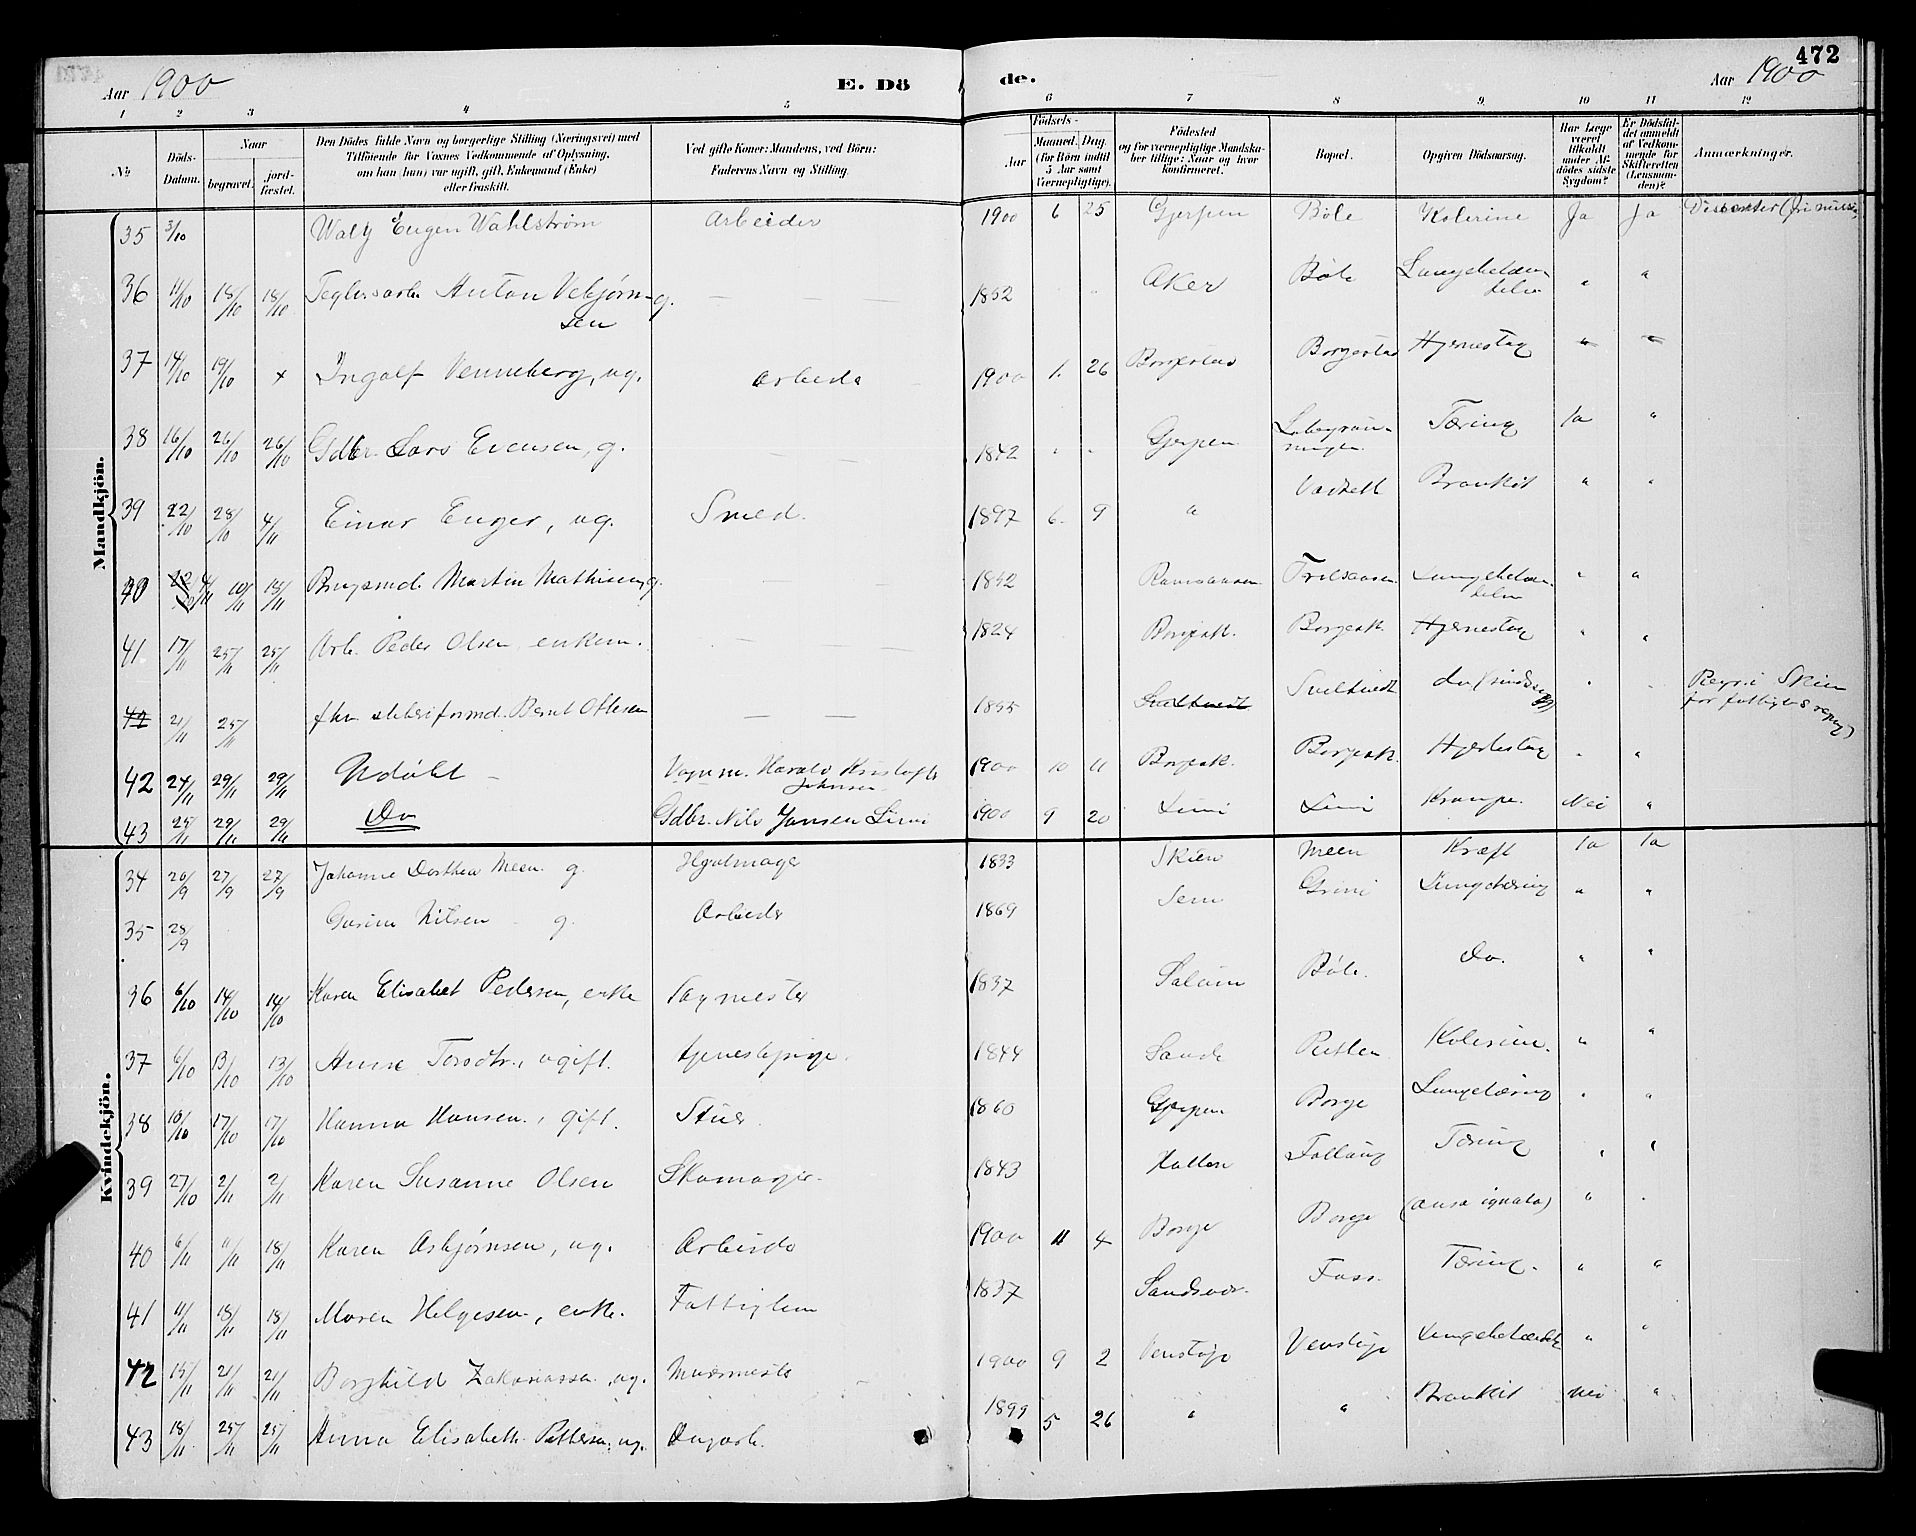 472
Aar 1900
E. Dö
de.
Aar 1900
1 2 3 4 5 6 7 8 9. 10 11 12
No
Döds-Datum.
Naar
begravet.
jordfæstet.
Den Dödes fulde Navn og borgerlige Stilling (Næringsvei) med Tilföiende for Voxnes Vedkommende af Oplysning, om han (hun) var ugift, gift, Enkemand (Enke) eller fraskilt.
Ved gifte Koner: Mandens, ved Börn: Faderens Navn og Stilling.
Födsels-
Aar
Maaned. Dag.
(for Börn indtil 5 Aar samt Værnepligtige).
Födested og for værnepligtige Mandskaber tillige: Naar og hvor konfirmeret.
Bopæl.
Opgiven Dödsaarsag.
Har Læge været tilkaldt under Afdödes sidste Sygdom?
Er Dödsfaldet anmeldt af Vedkommende for Skifteretten (Lensmanden)?
Anmærkninger.
Mandkjön.
35 3/10 Waly Eugen Wahlström Arbeider 1900 6 25 Gjerpen Böle Kolerine Ja Ja Dissenter
36 11/10 18/10 18/10 Anton Vebjørnsen g. — — 1852 Aker Böle " "
37 14/10 19/10 x Ingolf Venneberg, ug. Arbeide 1900 1. 26 Borgestad Borgestad Hjernestag " "
38 16/10 26/10 26/10 Gdbr. Lars Evensen, g. — — 1842 " " Gjerpen Tæring Ja "
39 22/10 28/10 4/11 Einar Enger, ug. Smed. 1897 6. 9 " Bronkit " "
40 4/11 10/11 18/11 Martin Mathisen g. — — 1852 " "
41 17/11 25/11 25/11 Arb. Peder Olsen enkem. — — 1824 Borgest. Borgest. Hjernestag " "
42 21/11 25/11 Bernt Ottesen — — 1855 Regr. i Skien
42 24/11 29/11 29/11 Udöbt — Harald Kristoffe Johnsen 1900 10 11 Borgest. Borgest. " "
43 25/11 29/11 29/11 Do Gdbr. Nils Jansen Limi 1900 9 20 Limi Limi Krampe. Nei "
Kvindekjön.
34 20/9 27/9 27/9 Johanne Dorthea Meen. g. Hjulmage 1833 Skien Meen Kræft Ja Ja
35 28/9 Nilsen g. Arbeide 1869 Sem Grini Lungetæring " "
36 6/10 14/10 14/10 Karen Elisabet Pedersen, enke Sagmester 1837 Solum Böle. Do. " "
37 6/10 13/10 13/10 Anne ugift. tjenestepige. 1844 Sande Kolerine. " "
38 10/10 17/10 17/10 Hanna Hansen., gift. Stuer 1860 Gjerpen Borge Lungetæring " "
39 27/10 2/11 2/11 Karen Susanne Olsen Skomager. 1843 Tæring " "
40 6/11 11/11 18/11 Karen Asbjørnsen, ug. Arbeide 1900 11 4 Borge Borge (ausa ignota) " "
41 11/11 18/11 18/11 Maren Helgesen, enke. Fattiglem 1837 Foss. Tæring. " "
42 15/11 21/11 21/11 Borghild Zakariassen ug. Murmeste 1900 9 2 Venstøp Venstøp " "
43 18/11 25/11 25/11 Anna Elisabeth Pettersen, ug. Dagarb. 1899 5 26 " " Bronkit Nei "